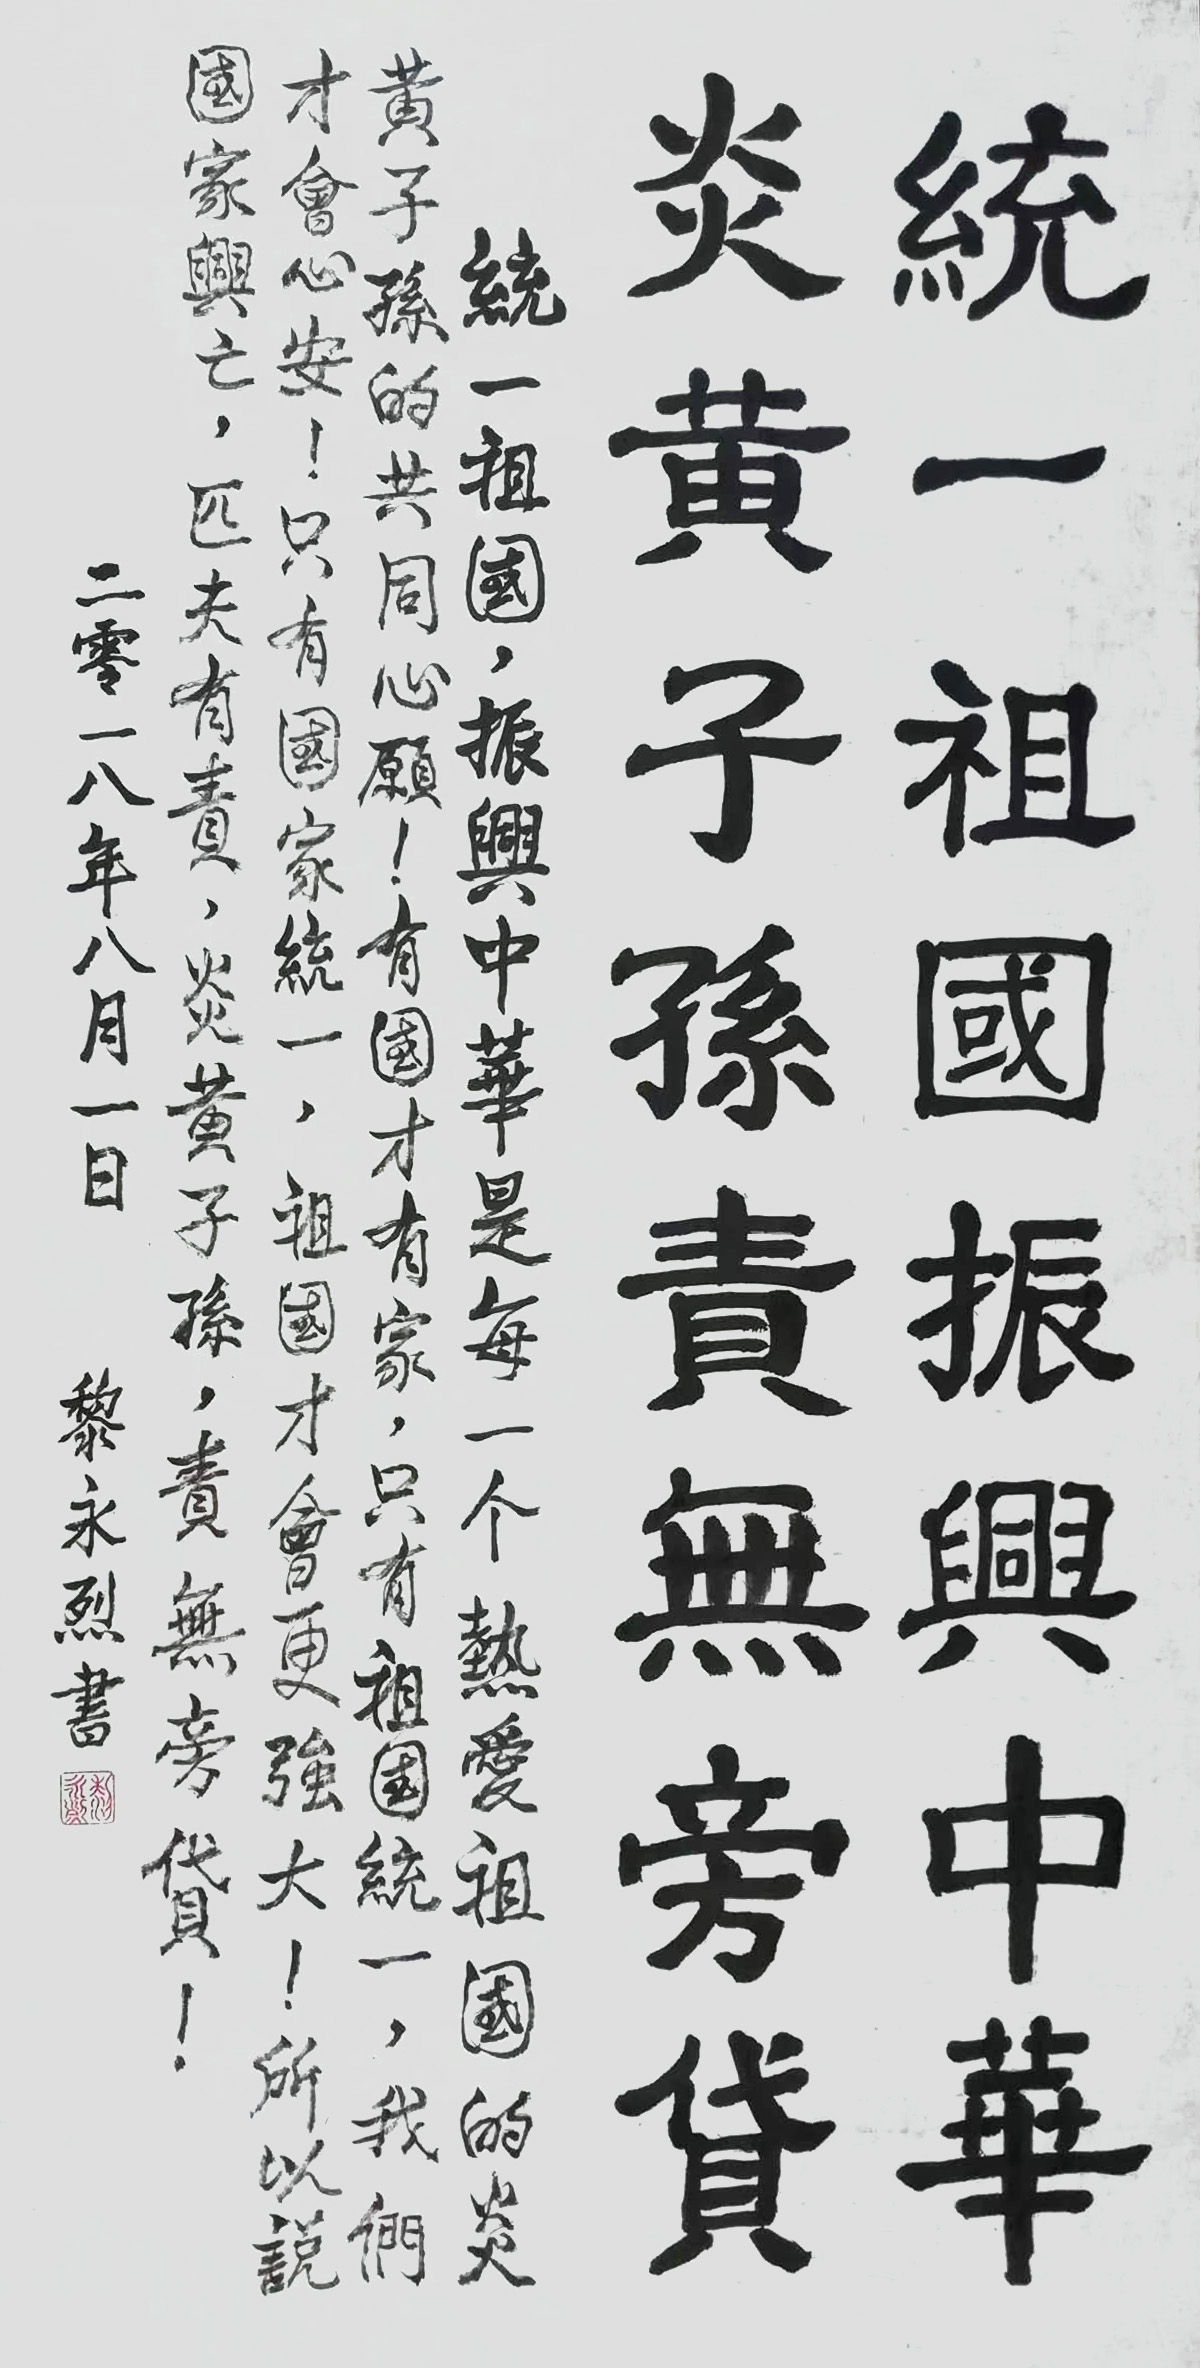 統一祖國振興中華
炎黄子孫責無旁貸
統一祖國，振興中華是每一个熱愛祖國的炎
黄子孫的共同心願！有國才有家，只有祖國統一，我們
才會心安！只有國家統一，祖國才會更強大！所以説
國家興亡，匹夫有責，炎黄子孫，責無旁貸！
二零一八年八月一日 黎永烈書